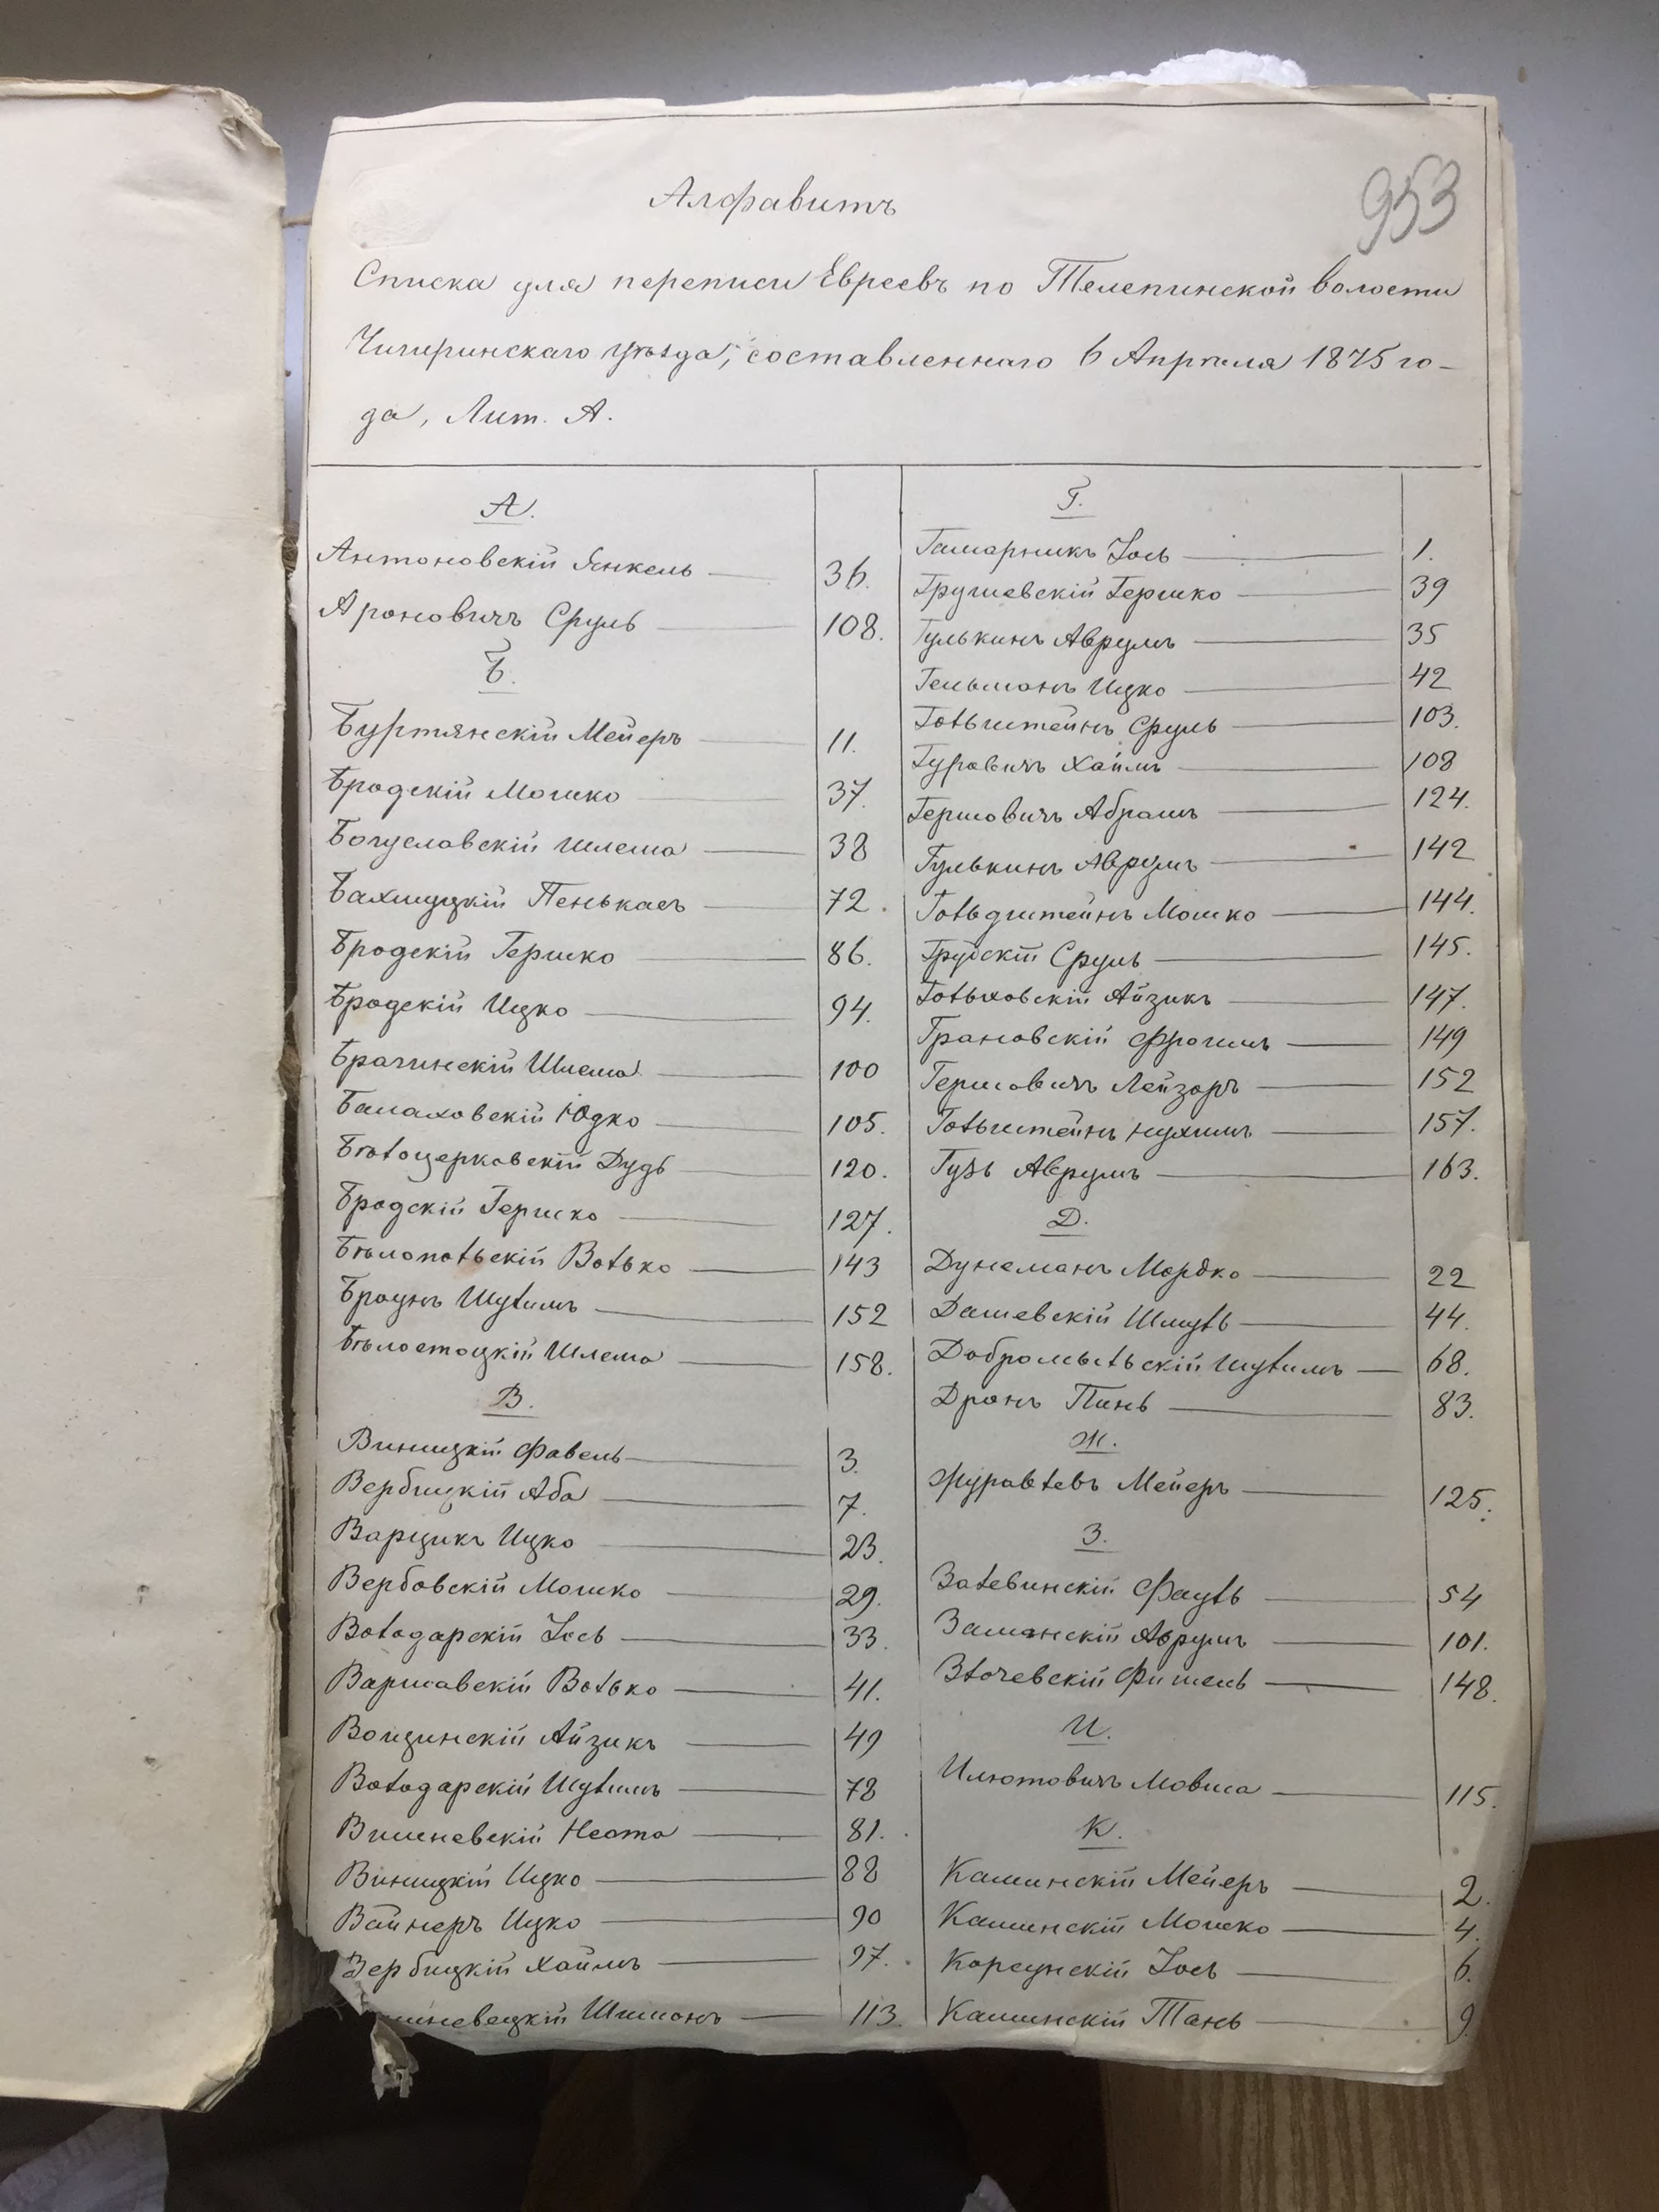 953
Алфавитъ
Списка для переписи Евреевъ по Телепинской волости
Чигиринскаго уѣзда, составленнаго 6 Апрѣля 1875 го-
да, Лит. А.
А.
Антоновскій Янкель 36.
Ароновичъ Сруль 108.
Б.
Буртянскій Мейеръ 11.
Бродскій Мошко 37.
Богуславскій Шлема 38
Бахмуцкій Пенькасъ 72.
Бродскій Гершко 86.
Бродскій Ицко 94.
Брагинскій Шлема 100
Балаховскій Юдко 105.
Бѣлоцерковскій Дудь 120.
Бродскій Гершко 127.
Бѣлопольскій Волько 143
Браунъ Шулимъ 152
Бѣлостоцкій Шлема 158.
В.
Виницкій Фавель 3.
Вербицкій Аба 7.
Варцикъ Ицко 23.
Вербовскій Мошко 29.
Володарскій Іось 33.
Варшавскій Волько 41.
Вощинскій Айзикъ 49
Володарскій Шулимъ 78
Вишневскій Неата 81.
Виницкій Ицко 88
Вайнеръ Ицко 90
Вербицкій Хаимъ 97.
Шимонъ 113.
Г.
Гамарникъ Іось 1.
Грушевскій Гершко 39
Гулькинъ Аврумъ 35
Гельманъ Ицко 42
Гольштейнъ Сруль 103.
Гуровичъ Хаимъ 108
Гершовичъ Абрамъ 124.
Гулькинъ Аврумъ 142
Гольдштейнъ Мошко 144.
Грудскій Сруль 145.
Гольховскій Айзикъ 147.
Грановскій Фроимъ 149
Гершовичъ Лейзоръ 152
Гольштейнъ Нухимъ 157.
Гузь Аврумъ 163.
Д.
Дунеманъ Мордко 22
Дашевскій Шмуль 44.
Добромыльскій Шулимъ 68.
Дронъ Пинь 83.
Ж.
Журавлевъ Мейеръ 125.
З.
Залевинскій Фауль 54
Заманскій Аврумъ 101.
Злочевскій Фишель 148.
И.
Илютовичъ Мовша 115.
К.
Каминскій Мейеръ 2.
Каминскій Мошко 4.
Корсунскій Іось 6.
Каминскій Тань 9.